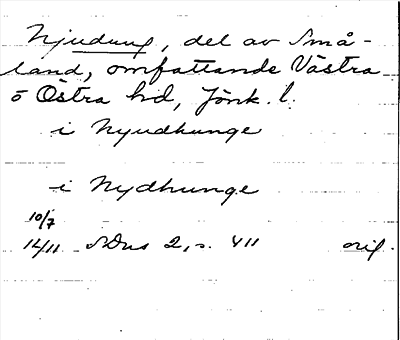 Njudung, del av Små-
land, omfattande Västra
o Östra hd, Jönk. l.
i Nyudhunge
i Nydhunge
10/7
1411 SDns 2, s. 411 orig.